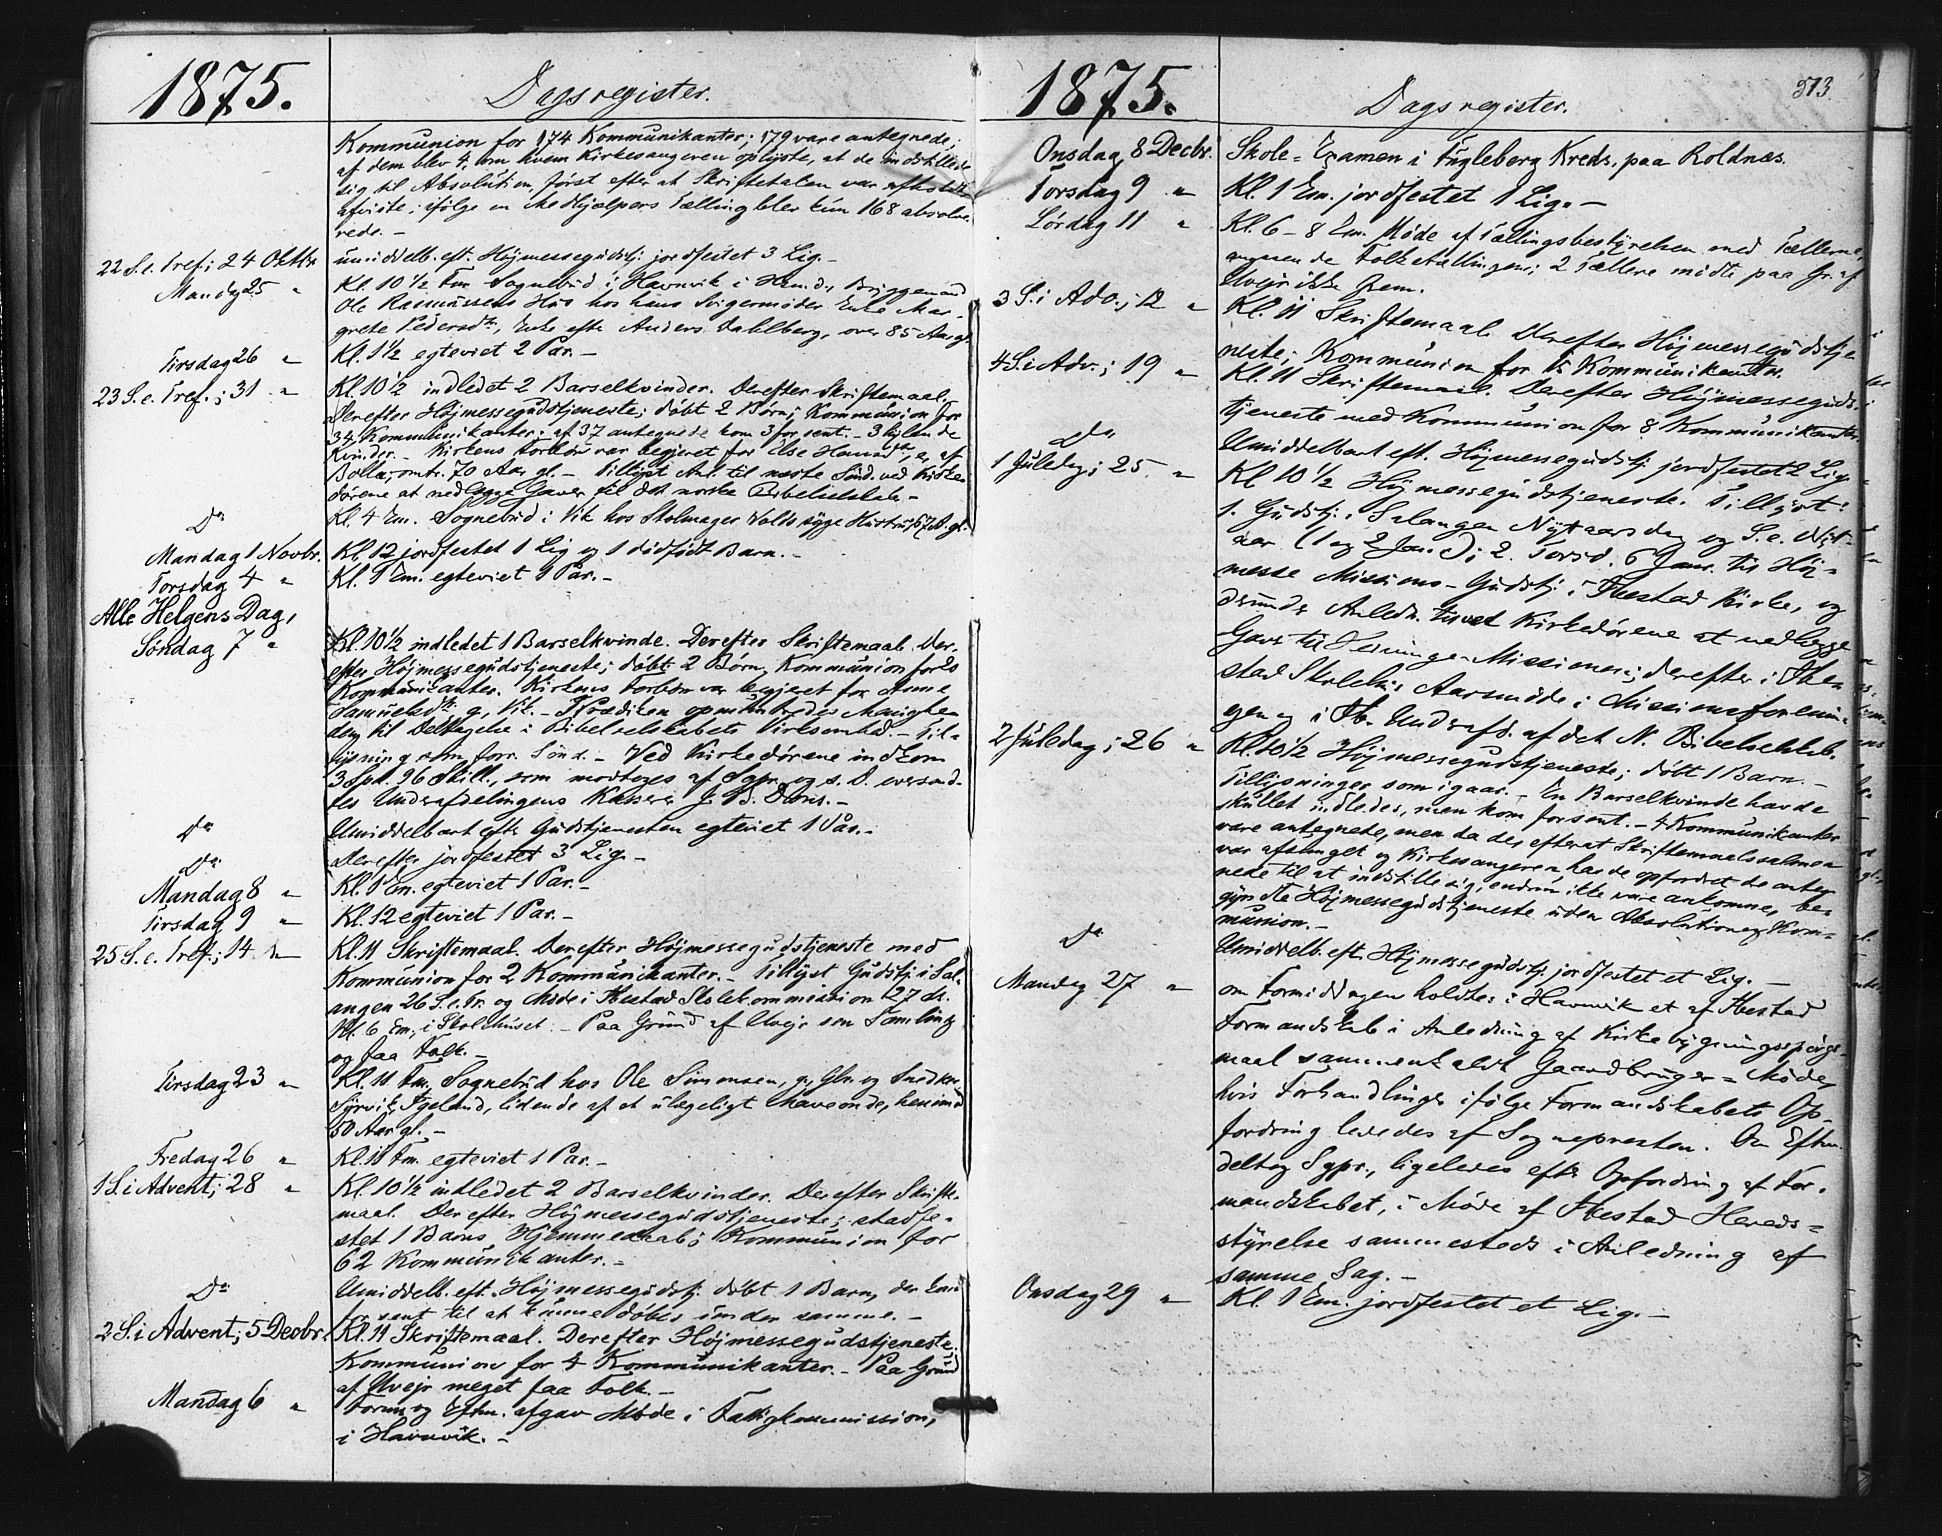 1875.
Dagsregister.
Kommunion for 174 Kommunikanter; 179 vare antegnede,
af dem blev 4, om hvem Kirkesangeren oplyste, at de indstillede
sig til Absolution først efter at Skriftetalen var afholdt
afviste; ifølge en Medhjælpers Tælling blev kun 168 absolve-
rede. –
22 S. e. Tref.; 24 Oktbr. umiddelb. eft. Højmessegudstj. jordfestet 3 Lig. –
Mandag 25 " Kl. 10 1/2 Fm. Sognebud i Havnvik i
Ole Rasmussens Hus hos hans Svigermoder Enke Mar-
grete Pedersdtr., Enke efter Anders Dahlberg, over 85 Aar gl.
Tirsdag 26 " Kl. 1 1/2 egteviet 2 Par. –
23 S. e. Tref.; 31 " Kl. 10 1/2 indledet 2 Barselkvinder. Derefter Skriftemaal.
Derefter Højmessegudstjeneste; døbt 2 Børn; Kommunion for
34 Kommunikanter; af 37 antegnede kom 3 for sent. – 3
Kvinder. – Kirkens Forbøn var begjeret for Else
Bolla, omtr. 70 Aar gl. – Tillyst Anl. til næste Sønd. ved Kirke-
dørene at nedlægge Gaver til det norske Bibelselskab –
Do Kl. 4 Em. Sognebud i Vik hos Skolmager syge Hustru, 67 A. gl.
Mandag 1 Novbr. Kl. 12 jordfestet 1 Lig og 1 dødfødt Barn. –
Torsdag 4 " Kl. 1 Em. egteviet 1 Par. –
Alle Helgens Dag,
Søndag 7 " Kl. 10 1/2 indledet 1 Barselkvinde. Derefter Skriftemaal. Der-
efter Højmessegudstjeneste; døbt 2 Børn, Kommunion for
Kommunikanter. Kirkens Forbøn var begjeret for Anne
Samuelsdtr. g., Vik. – I Prædiken opmuntredes Menighe-
den til Deltagelse i Bibelselskabets Virksomhed. – Til-
lysning som forr. Sønd. – Ved Kirkedørene indkom
3 Spd. 96 Skill., som modtoges af Sgpr. og s. D. oversend-
tes Underafdelingens Kasserer
Do Umiddelbart efter Gudstjenesten egteviet 1 Par. –
Do Derefter jordfestet 3 Lig. –
Mandag 8 " Kl. 1 Em. egteviet 1 Par. –
Tirsdag 9 " Kl. 12 egteviet 1 Par. –
25 S. e. Tref.; 14 " Kl. 11 Skriftemaal. Derefter Højmessegudstjeneste med
Kommunion for 2 Kommunikanter. – Tillyst Gudstj. i Sal-
angen 26 S. e. Tr. og Møde i Ibestad Skolekommission 27 ds.
Kl. 6 Em. i Skolehuset. – Paa Grund af Uvejr sen Samling
og faa Folk. –
Tirsdag 23 " Kl. 11 Fm. Sognebud hos Ole Simonsen, g., Gbr. og Snedker
Sørvik, lidende af et ulægeligt Maveonde, henimod
50 Aar gl. –
Fredag 26 " Kl. 11 Fm. egteviet 1 Par. –
1 S. i Advent; 28 " Kl. 10 1/2 indledet 2 Barselkvinder. Derefter Skrifte-
maal. Derefter Højmessegudstjeneste; stadfæ-
stet 1 Barns Hjemmedaab; Kommunion for
62 Kommunikanter. –
Do Umiddelb. eft. Højmessegudstj. døbt 1 Barn, der kom
for sent til at kunne døbes under samme. –
2 S. i Advent; 5 Decbr. Kl. 11 Skriftemaal. Derefter Højmessegudstjeneste.
Kommunion for 4 Kommunikanter. – Paa Grund
af Uvejr meget faa Folk. –
Mandag 6 " Form. og Eftm. afgav Møde i Fattigkommission,
i Havnvik. –
1875.
Dagsregister.
313
Onsdag 8 Decbr. Skole-Examen i Fugleberg Kreds, paa Roldnæs.
Torsdag 9 " Kl. 1 Em. jordfestet 1 Lig. –
Lørdag 11 " Kl. 6–8 Em. Møde af Tællingsbestyrelsen med Tællerne
angaaende Folketællingen; 2 Tællere mødte paa Gr. af
Uvejr ikke frem.
3 S. i Adv.; 12 " Kl. 11 Skriftemaal. Derefter Højmessegudstje-
neste; Kommunion for 15 Kommunikanter.
4 S. i Adv.; 19 " Kl. 11 Skriftemaal. Derefter Højmesseguds-
tjeneste med Kommunion for 8 Kommunikanter.
Do Umiddelbart eft. Højmessegudstj. jordfestet 2 Lig. –
1 Juledag; 25 " Kl. 10 1/2 Højmessegudstjeneste. Tillyst:
1. Gudstj. i Salangen Nytaarsdag og S. e. Nyt-
aar (1 og 2 Jan.); 2. Torsd. 6 Janr. til Høj-
messe Missions-Gudstj. i Ibestad Kirke, og
Anledn. til ved Kirkedørene at nedlægge
Gaver til Missionen; derefter i Ibe-
stad Skolehus Aarsmøde i Missionsforenin-
gen og i Ib. Underafd. af det N. Bibelselskab.
2 Juledag; 26 " Kl. 10 1/2 Højmessegudstjeneste; døbt 1 Barn. –
Tillysninger som igaar. – En Barselkvinde havde
skullet indledes, men kom forsent. – 4 Kommunikanter
vare antegnede, men da de, efterat Skriftemaalssalmen
var afsunget og Kirkesangeren havde opfordret de anteg-
nede til at indstille sig, endnu ikke vare ankomne, be-
gyndte Højmessegudstjeneste uden Absolution og Kom-
munion. –
Do Umiddelb. eft. Højmessegudstj. jordfestet et Lig. –
Mandag 27 " om Formiddagen holdtes i Havnvik et af Ibestad
Formandskab i Anledning af Kirkebygningsspørgs-
maal sammenkaldt Gaardbruger-Møde,
hvis Forhandlinger ifølge Formandskabets Op-
fordring lededes af Sognepresten. Om Eftm.
deltog Sgpr., ligeledes efter Opfordring af For-
mandskabet, i Møde af Ibestad Hereds-
styrelse sammesteds i Anledning af
samme Sag. –
Onsdag 29 " Kl. 1 Em. jordfestet et Lig. –